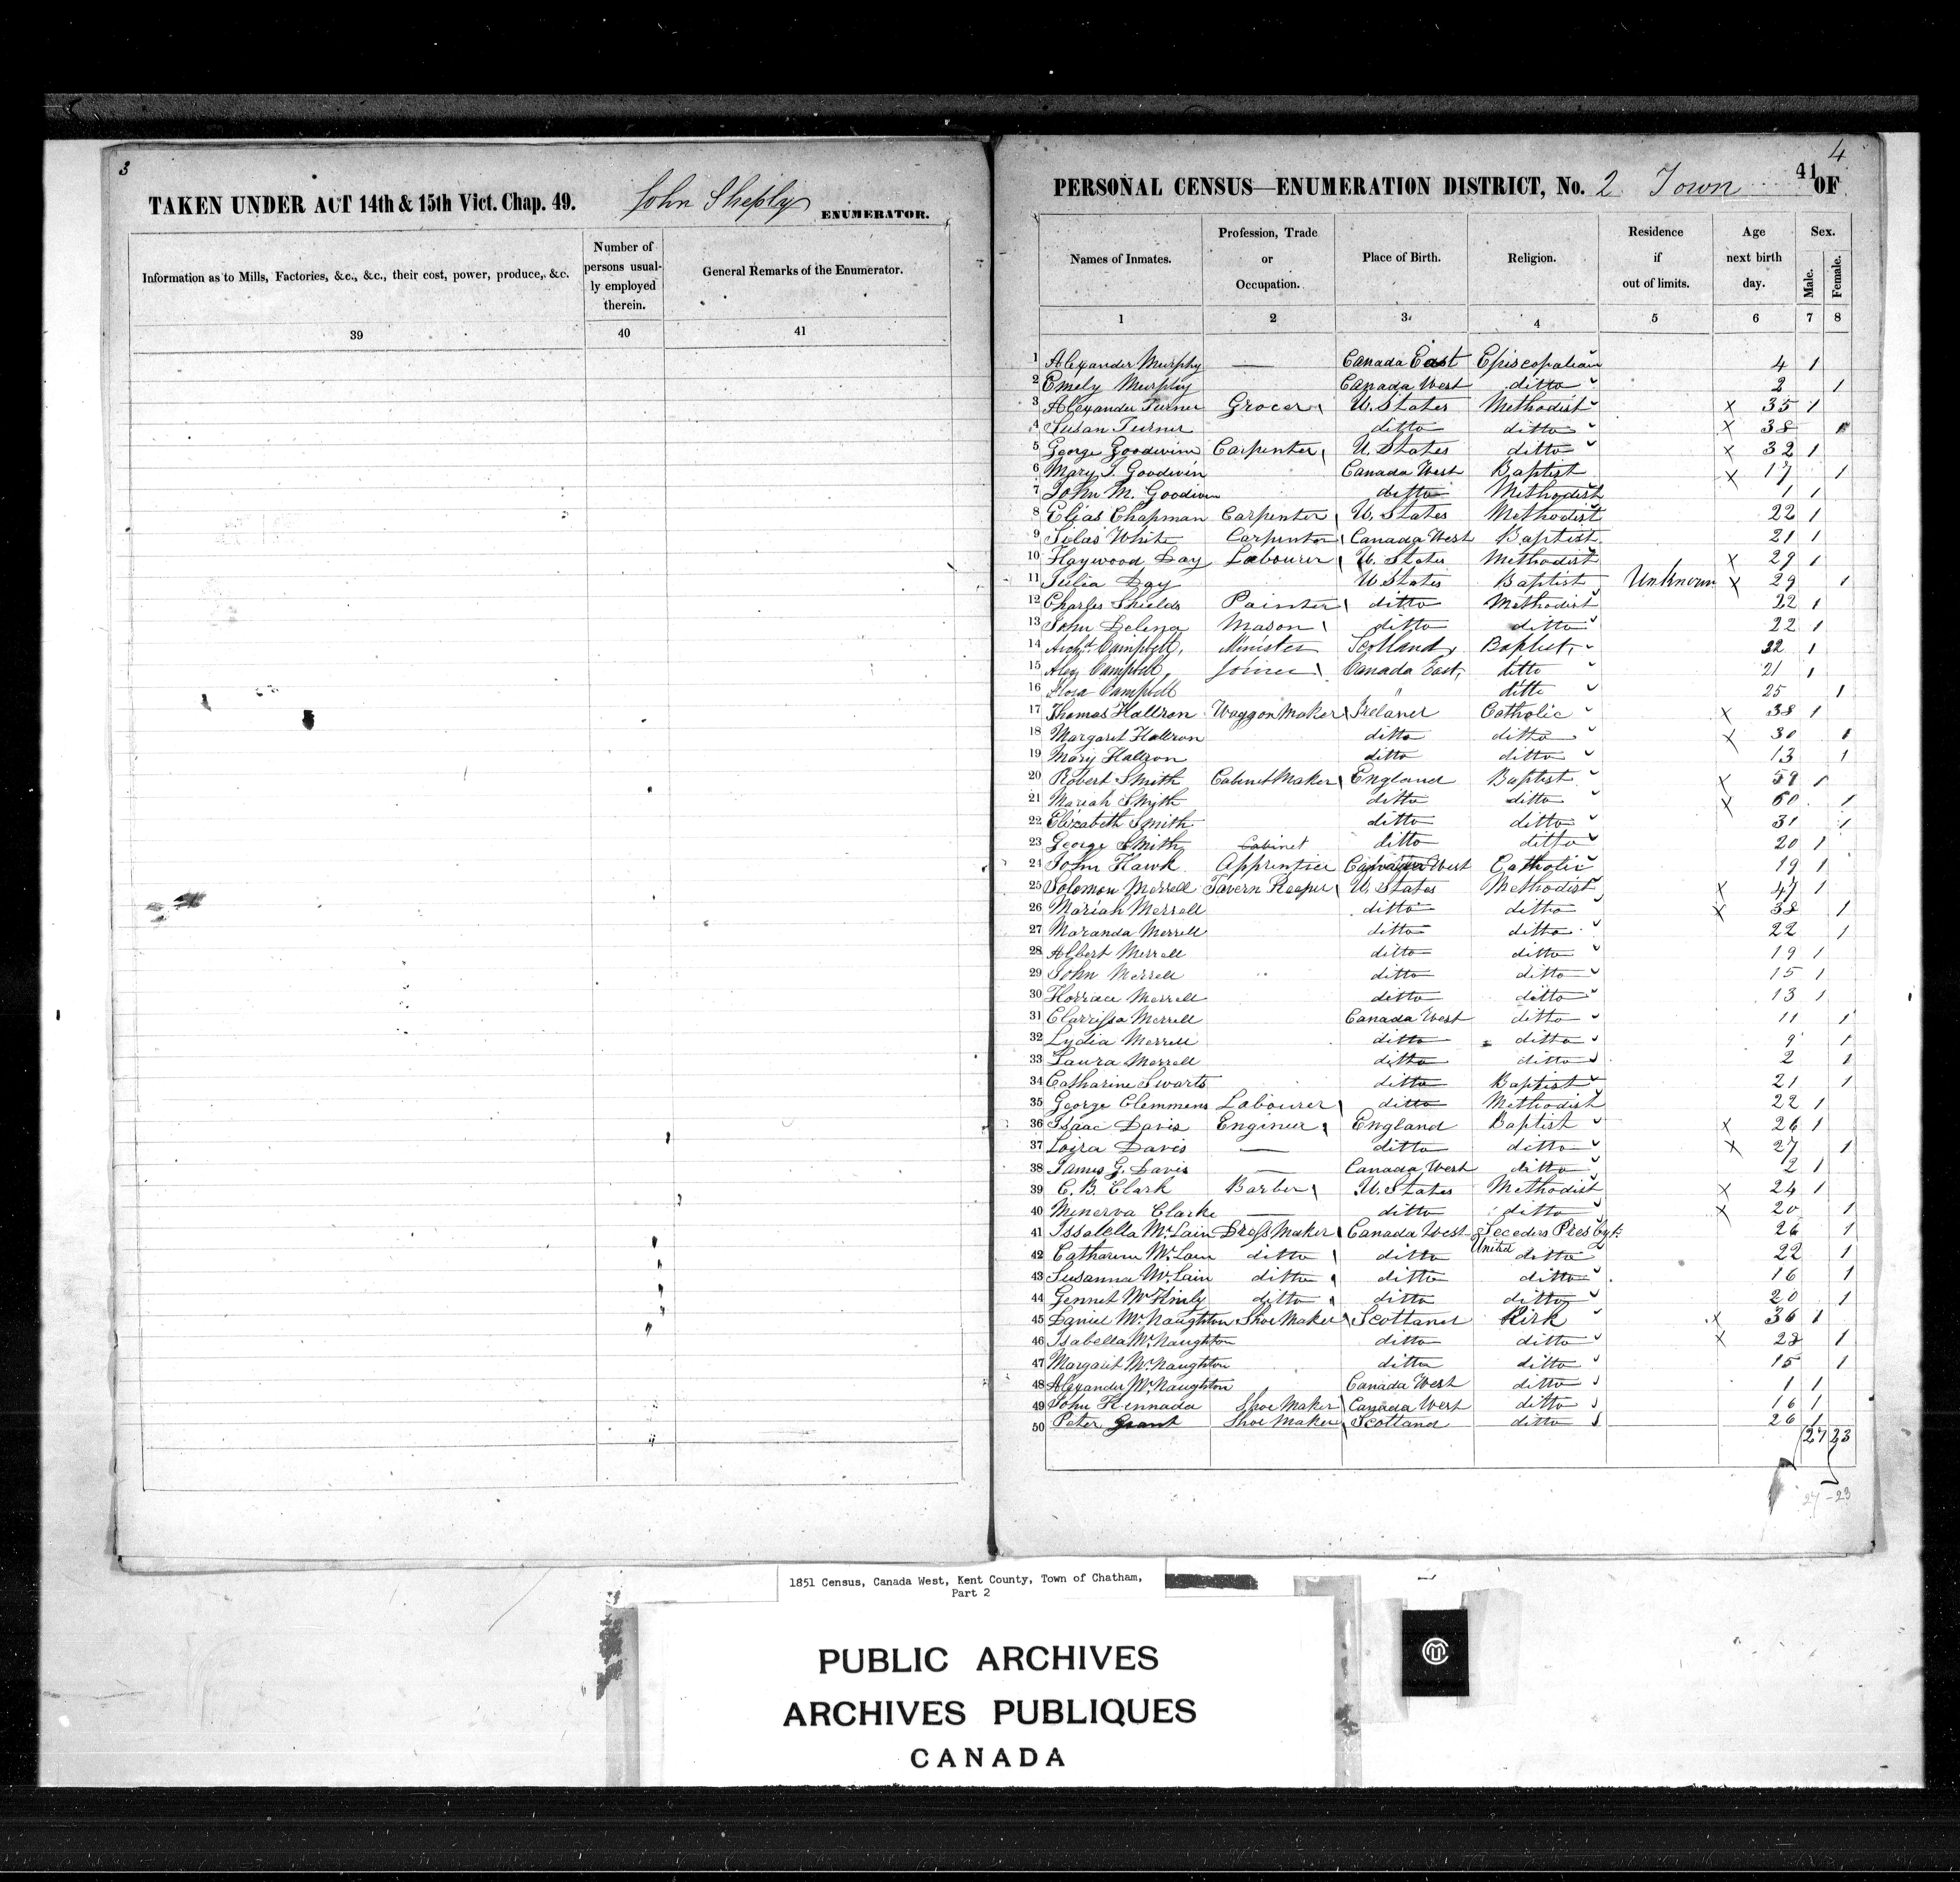 3
TAKEN UNDER ACT 14th & 15th Vict. Chap. 49. John Sheply ENUMERATOR.
Information as to Mills, Factories, &c., &c., their cost, power, produce, &c.
Number of persons usual-ly employed therein.
General Remarks of the Enumerator.
39 40 41
4
41
PERSONAL CENSUS—ENUMERATION DISTRICT, No. 2 Town OF
Names of Inmates.
Profession, Trade or Occupation.
Place of Birth.
Religion.
Residence if out of limits.
Age next birth day.
Sex.
Male. Female.
1 2 3 4 5 6 7 8
1 Alexander Murphy — Canada East Episcopalian 4 1
2 Emely Murphy Canada West ditto 2 1
3 Alexander Turner Grocer U. States Methodist x 35 1
4 Susan Turner ditto ditto x 38 1
5 George Goodwine Carpenter U. States ditto x 32 1
6 Mary J. Goodwin Canada West Baptist x 17 1
7 John M. Goodwin ditto Methodist 1 1
8 Elias Chapman Carpenter U. States Methodist 22 1
9 Silas White Carpenter Canada West Baptist 21 1
10 Haywood Day Labourer U. States Methodist x 29 1
11 Julia Day U States Baptist Unknown x 29 1
12 Charles Shields Painter ditto Methodist 22 1
13 John Delena Mason ditto ditto 22 1
14 Archd. Campbell, Minister Scotland, Baptist, 22 1
15 Alex Campbell, Joiner Canada East, ditto 21 1
16 Flora Campbell " ditto 25 1
17 Thomas Hallron Waggon Maker Ireland Catholic x 38 1
18 Margaret Hallron ditto ditto x 30 1
19 Mary Hallron ditto ditto 13 1
20 Robert Smith Cabinet Maker England Baptist x 59 1
21 Mariah Smyth ditto ditto x 60 1
22 Elizabeth Smith ditto ditto 31 1
23 George Smith Cabinet ditto ditto 20 1
24 John Hawk Apprentice Canada West Catholic 19 1
25 Solomon Merrell Tavern Keeper U. States Methodist x 47 1
26 Mariah Merrell ditto ditto x 38 1
27 Maranda Merrell ditto ditto 22 1
28 Albert Merrell ditto ditto 19 1
29 John Merrell ditto ditto 15 1
30 Horriace Merrell ditto ditto 13 1
31 Clarrissa Merrell Canada West ditto 11 1
32 Lydia Merrell ditto ditto 9 1
33 Laura Merrell ditto ditto 2 1
34 Catharine Swarts ditto Baptist 21 1
35 George Clemmens Labourer ditto Methodist 22 1
36 Isaac Davis Engineer England Baptist x 26 1
37 Loiza Davis — ditto ditto x 27 1
38 James G. Davis — Canada West ditto 2 1
39 C. B. Clark Barber U. States Methodist x 24 1
40 Minerva Clarke — ditto ditto x 20 1
41 Issabella McLain Dress Maker Canada West Seceders Presbyt: 26 1
42 Catharine McLain ditto ditto United ditto 22 1
43 Susanna McLain ditto ditto ditto 16 1
44 Gennet McKinly ditto ditto ditto 20 1
45 Daniel McNaughton Shoe Maker Scotland Kirk x 36 1
46 Isabella McNaughton ditto ditto x 28 1
47 Margaret McNaughton ditto ditto 15 1
48 Alexander McNaughton Canada West ditto 1 1
49 John Kennada Shoe Maker Canada West ditto 16 1
50 Peter Grant Shoe Maker Scotland ditto 26 1
27 23
27-23
1851 Census, Canada West, Kent County, Town of Chatham,
Part 2
PUBLIC ARCHIVES
ARCHIVES PUBLIQUES
CANADA